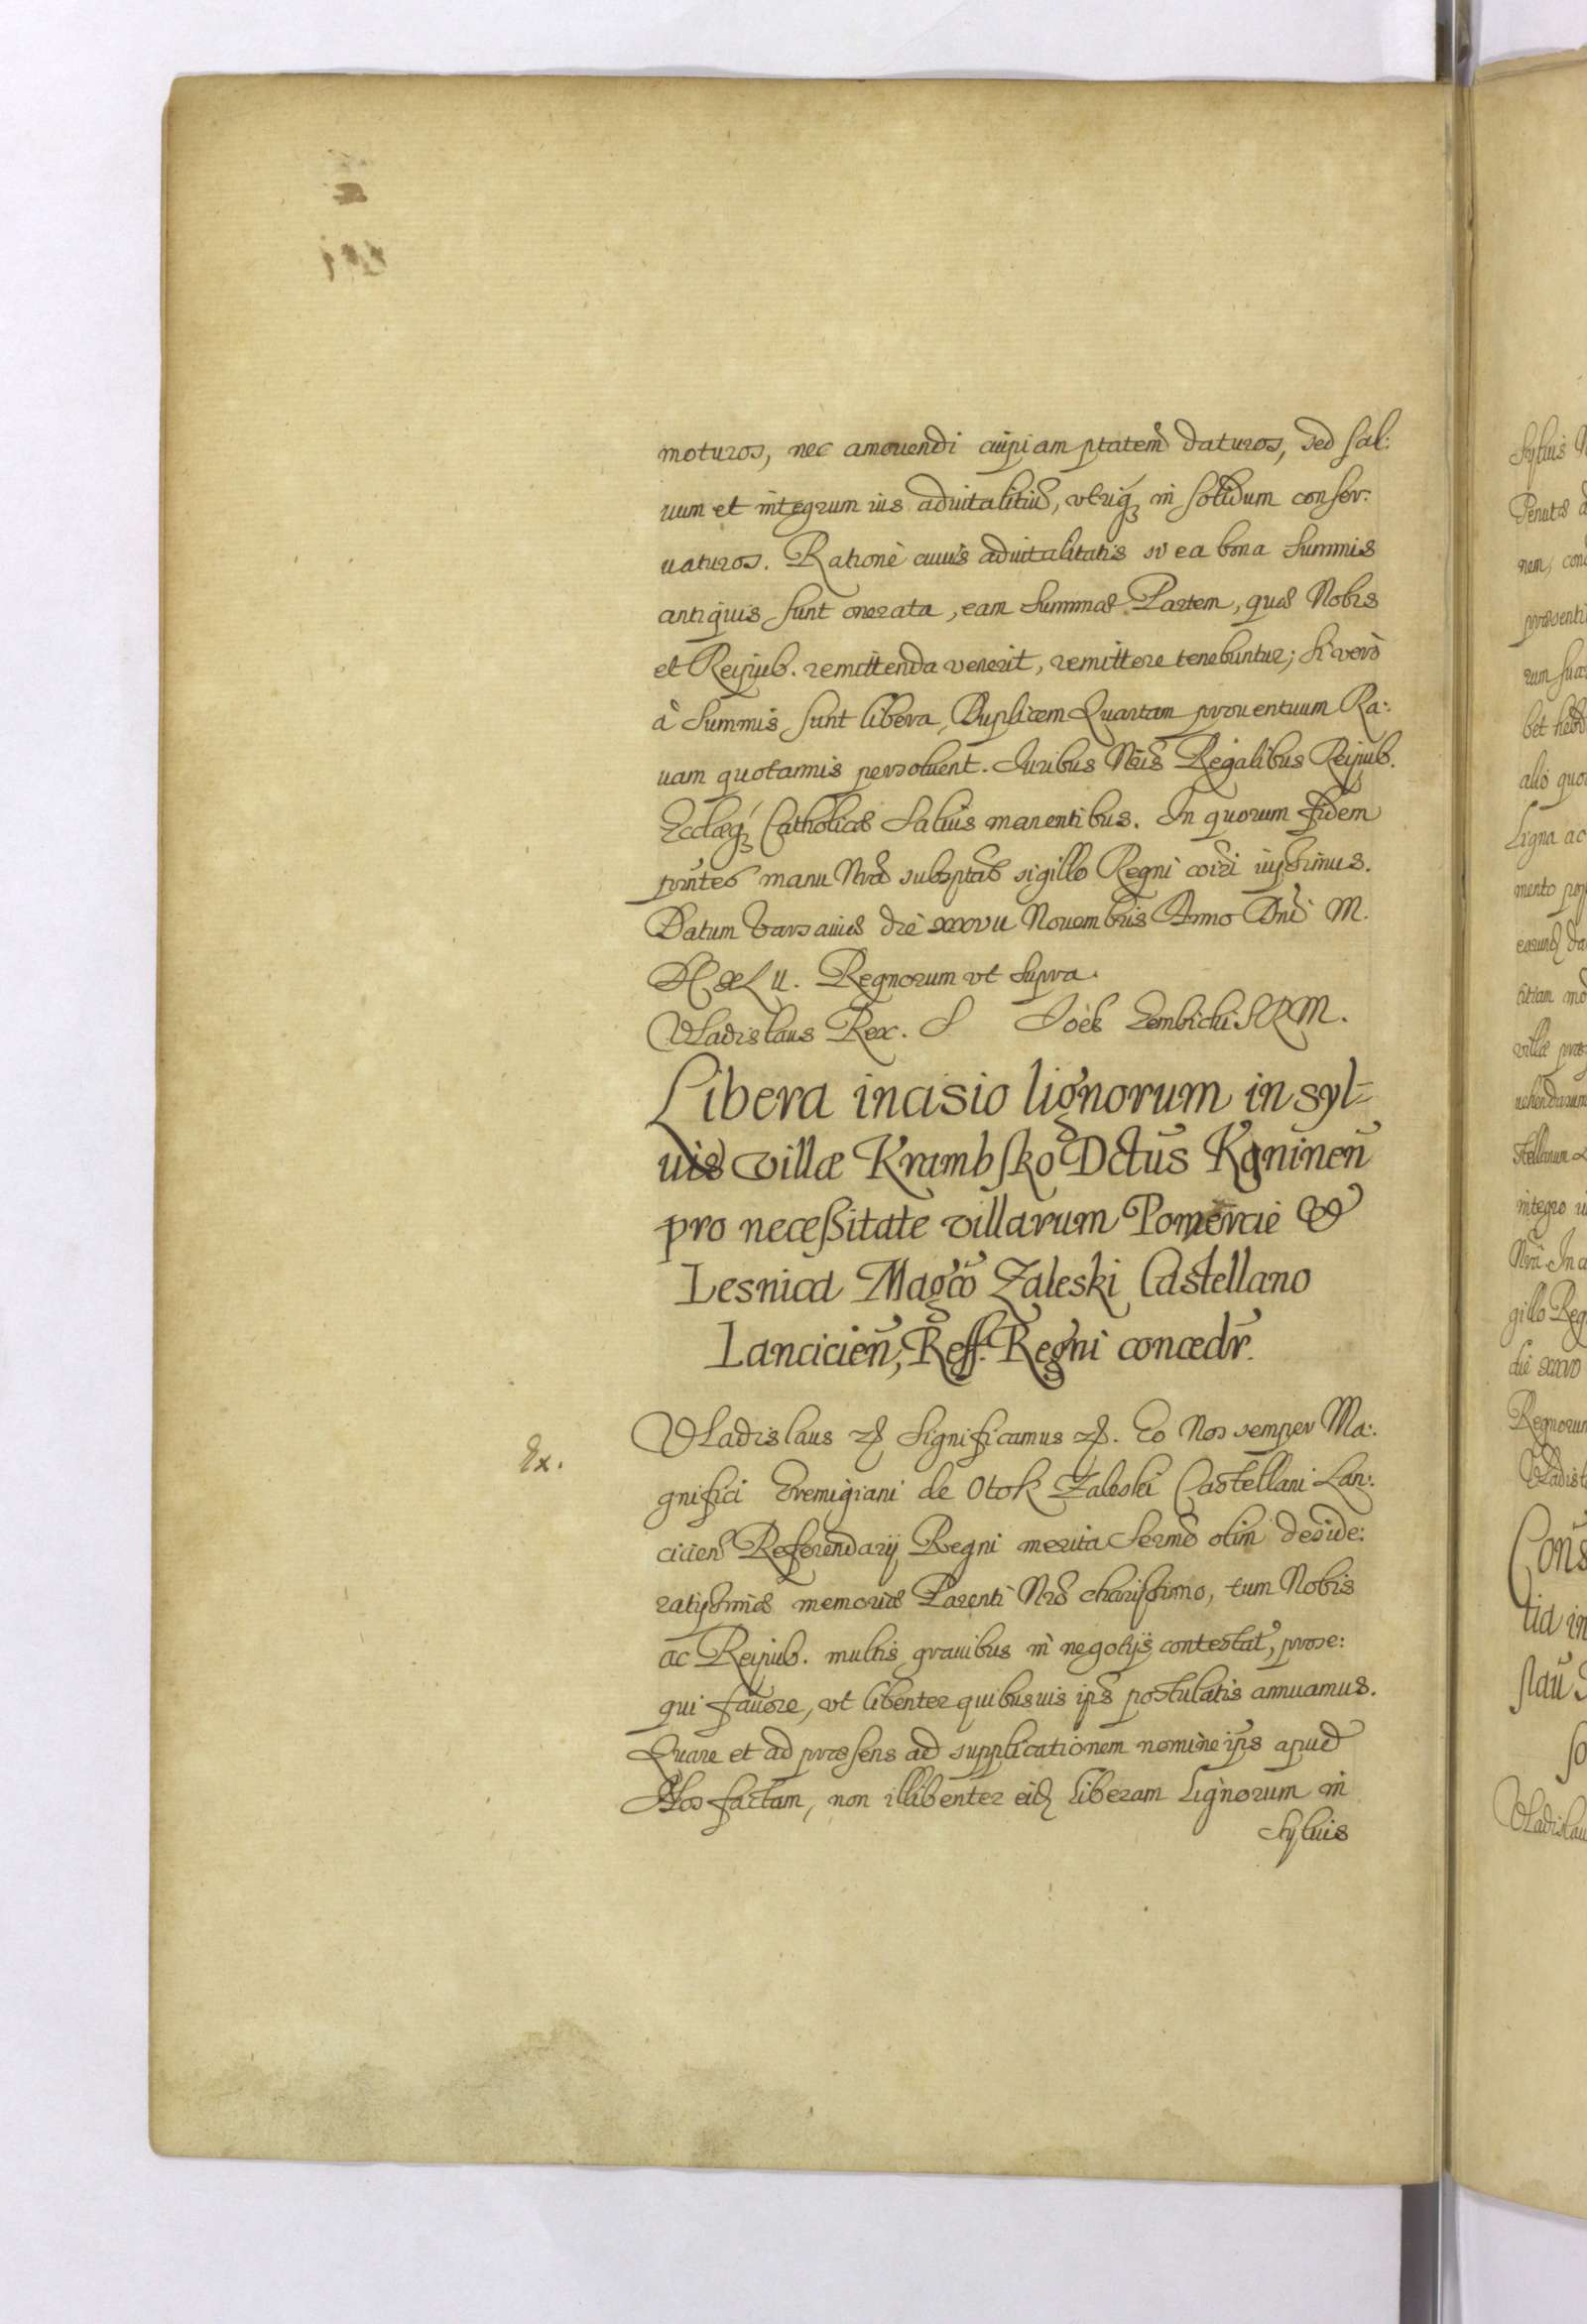 moturos, nec amouendi cuipiam ptatem daturos, sed sal:
uum et integrum ius aduitalitiu, utriq in solidum conser:
uaturos. Ratione cuius aduitalitatis si ea bona summis
antiquis sunt onerata, eam summae Partem, quae Nobis
et Reipub. remittenda venerit, remittere tenebuntur; si vero
à summis sunt libera, Duplicem Quartam prouentuum Ra:
uam quotannis persoluent. Iuribus Nris Regalibus Reipub.
Ecclaeq Catholicae saluis manentibus. In quorum fidem
pntes manu Nra subscptas sigillo Regni coiri iussimus.
Datum Varsauiae die Nouembris Anno Dni M.
Regnorum vt supra.
Vladislaus Rex. Joes Gembicki S R M.
Libera incisio lignorum in syl-
uis villæ Krambsko Dctus
pro necessitate villarum Pomorcie &
Lesnica Magco Zaleski Castellano
Lancicien, Reff. Regni concedr.
Ex.
Vladislaus significamus Eo Nos semper Ma:
gnifici Eremigiani de Otok Zaleski Castellani Lan:
cicien Referendarij Regni merita Sermo olim deside:
ratissimae memoriae Parenti Nro charissimo, tum Nobis
ac Reipub. multis grauibus in negotijs contestat, prose:
qui fauore, vt libenter quibusuis ips postulatis annuamus.
Quare et ad præsens ad supplicationem nomine ips apud
Nos factam, non illibenter eid liberam Lignorum in
Syluis